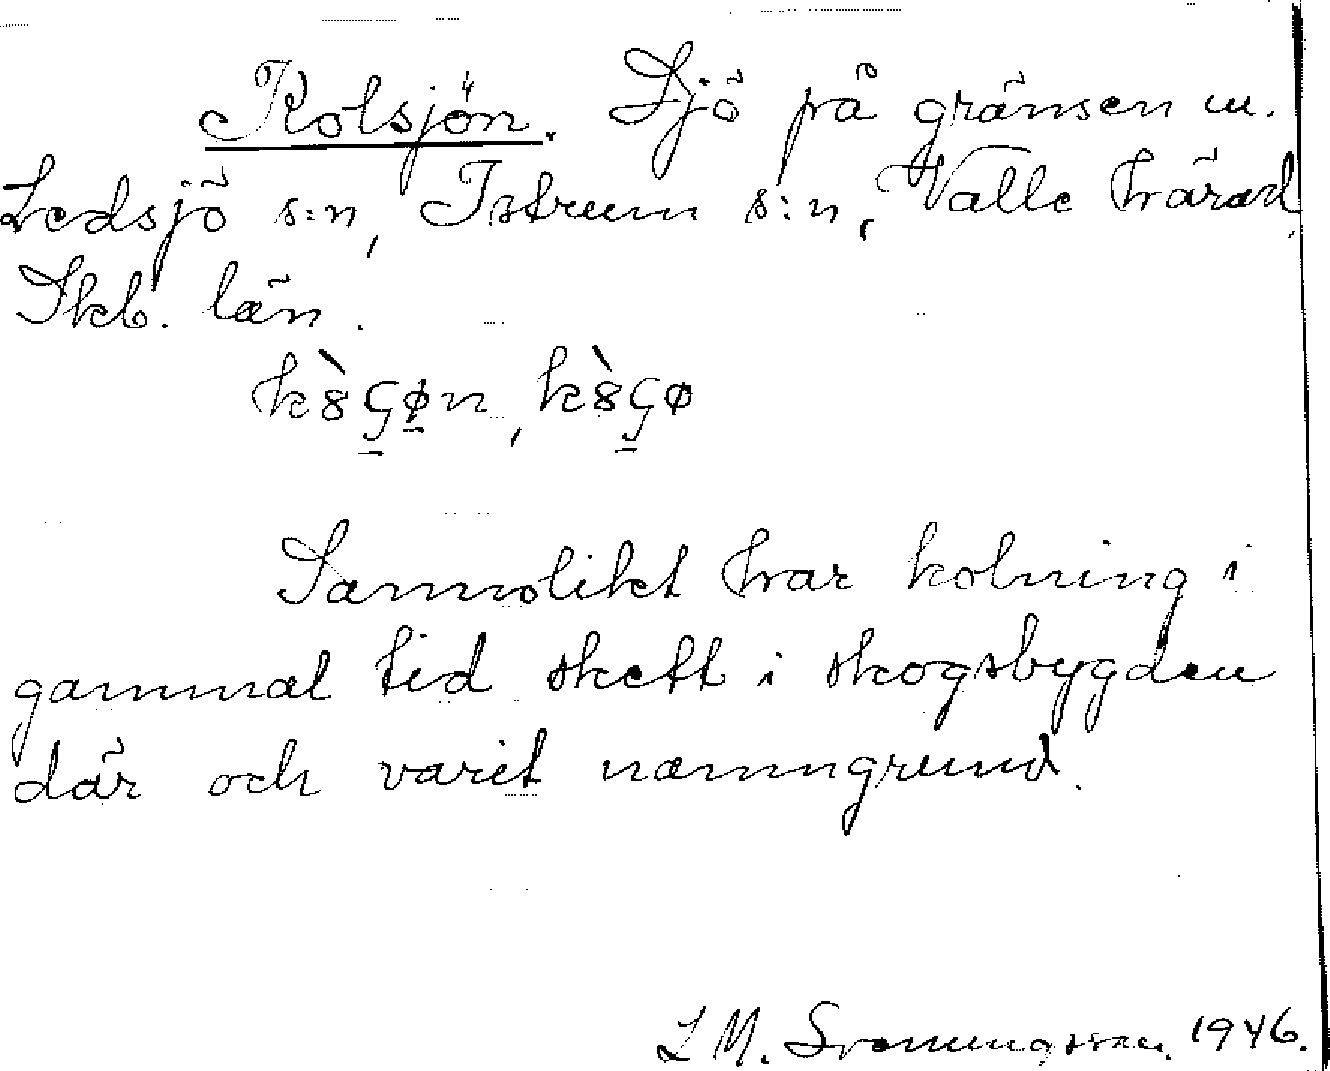 Kolsjön. Sjö på gränsen m.
Ledsjö s:n, Istrum s:n, Valle härad,
Skb. län.
kòȣςøn, kòȣςø
Sannolikt har kolning i
gammal tid skett i skogsbygden
där och varit namngrund.
L M. Svenungsson. 1946.